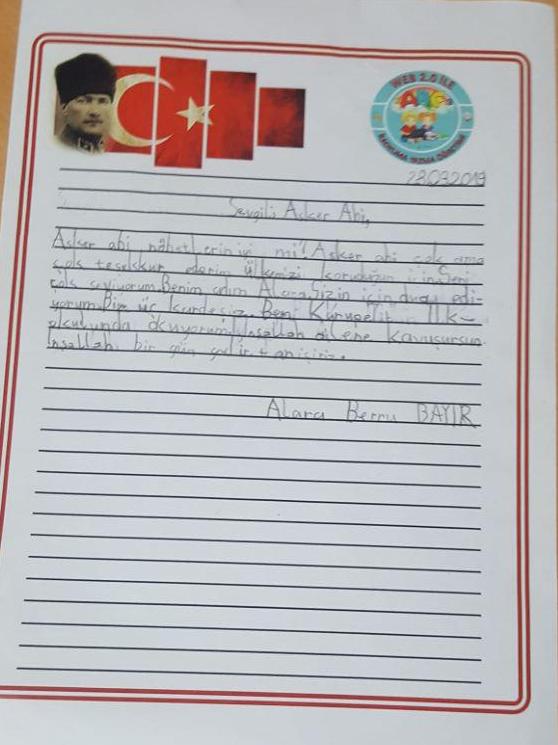 WEB 2.0 İLE
ABC
28.03.2019
Sevgili Asker Abi,
Asker abi nöbetlerin iyi mi? Asker abi çok ama
çok teşekkür ederim ülkemizi koruduğun için. Seni
çok seviyorum. Benim adım Alara. Sizin için dua edi-
yorum. Biz üç kardeşiz. Ben Kurupelit İlk-
okulunda okuyorum. İnşallah ailene kavuşursun.
İnşallah bir gün gelir tanışırız.
Alara Berru BAYIR